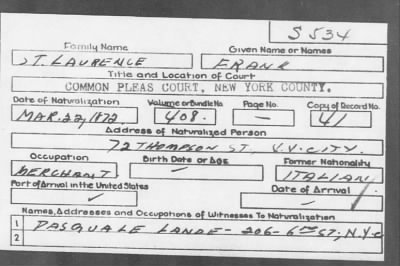 S 534
Family Name Given Name or Names
ST. LAURENCE FRANK
Title and Location of Court
COMMON PLEAS COURT, NEW YORK COUNTY.
Date of Naturalization Volume or Bundle No. Page No. Copy of Record No.
MAR. 22, 1872 408. — 41
Address of Naturalized Person
72 THOMPSON ST. N.Y. CITY.
Occupation Birth Date or Age Former Nationality
MERCHANT — ITALIAN
Port of Arrival in the United States Date of Arrival
Names, Addresses and Occupations of Witnesses To Naturalization
1 PASQUALE LANDE - 206 - 6TH ST, N.Y.C
2